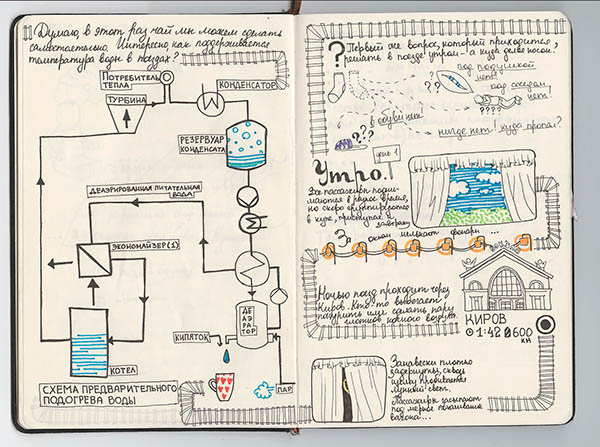 Думаю, в этот раз чай мы можем сделать
самостоятельно. Интересно, как поддерживается
температура воды в поездах?
ПОТРЕБИТЕЛЬ
ТЕПЛА
ТУРБИНА
КОНДЕНСАТОР
РЕЗЕРВУАР
КОНДЕНСАТА
ДЕАЭРИРОВАННАЯ ПИТАТЕЛЬНАЯ
ВОДА
ЭКОНОМАЙЗЕР(1)
ДЕ
АЭ
РА
ТОР
КИПЯТОК
КОТЕЛ
ПАР
СХЕМА ПРЕДВАРИТЕЛЬНОГО
ПОДОГРЕВА ВОДЫ
? Первый же вопрос, который приходится
решать в поезде утром - а куда делся носок?
под подушкой
нет!
???
под соседом
нет!
в обуви нет!
???
нигде нет! куда пропал?
день 1
Утро!
Все пассажиры подни-
маются в разное время,
но скоро
в купе, приступая к
завтраку
За окном мелькают фонари...
Ночью поезд проходит через
Киров. Кто-то выбегает
покурить или сделать пару
глотков
КИРОВ
1:42 600
КМ
Занавески плотно
задернуты, сквозь
пробивается
лунный свет.
Пассажиры засыпают
под мерное покачивание
вагона...